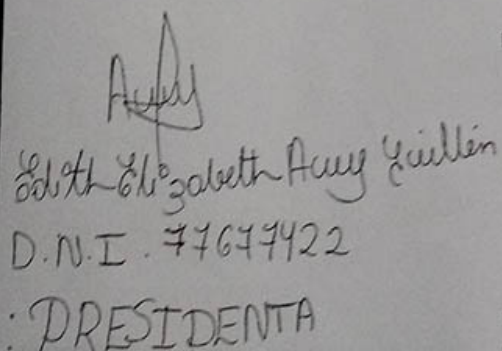 Edith Elizabeth Auy Guillén
D.N.I. 77677422
: PRESIDENTA